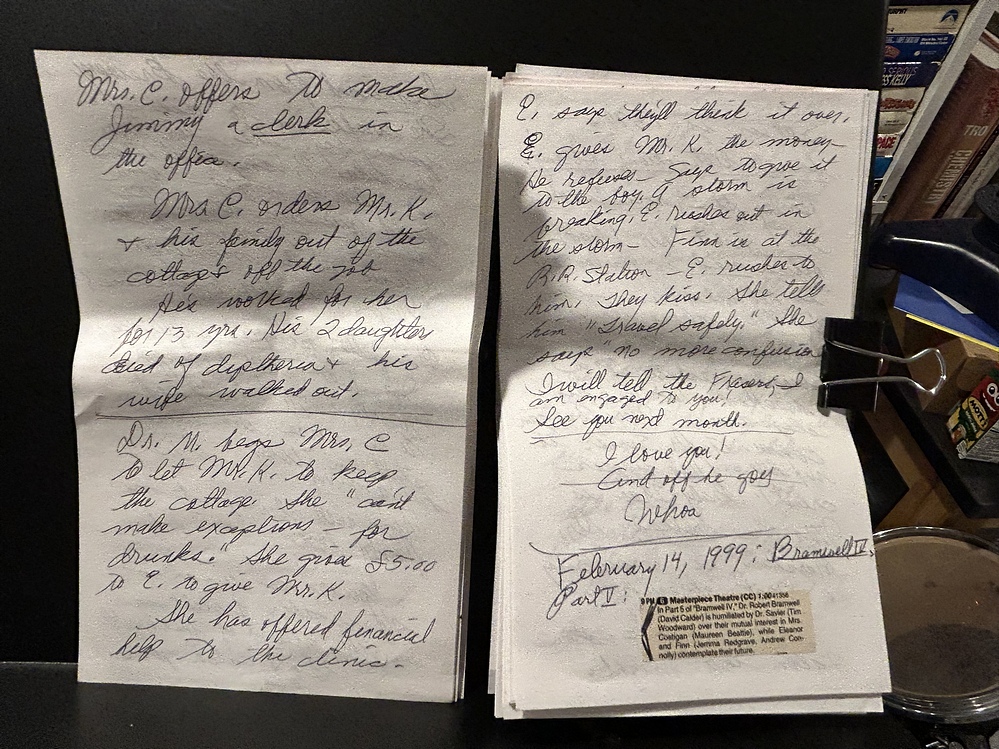 Mrs. C. offers to make
Jimmy a clerk in
the office.
Mrs C. orders Mr. K.
+ his family out of the
cottage & off the job
He's worked for her
for 13 yrs. His 2 daughters
died of diptheria + his
wife walked out.
Dr. M. begs Mrs. C
to let Mr. K. to keep
the cottage. She "can't
make exceptions — for
drunks." She gives £5.00
to E. to give Mr. K.
She has offered financial
help to the clinic.
E. says they'll think it over.
E. gives Mr. K. the money
He refuses — Says to give it
to the boy. A storm is
breaking. E. rushes out in
the storm — Finn is at the
R.R. Station — E. rushes to
him. They kiss. She tells
him "Travel safely." She
says "no more confusion
I will tell the Frasers, I
am engaged to you!
See you next month.
I love you!
And off he goes
Whoa
February 14, 1999: Bramwell IV,
Part V:
9 PM 6 Masterpiece Theatre (CC) 1:00 41356
In Part 5 of "Bramwell IV," Dr. Robert Bramwell
(David Calder) is humiliated by Dr. Savier (Tim
Woodward) over their mutual interest in Mrs.
Costigan (Maureen Beattie), while Eleanor
and Finn (Jemma Redgrave, Andrew Con-
nolly) contemplate their future.